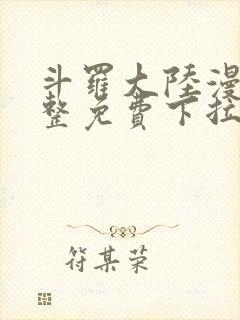 斗羅大陸漫
整免費下拉
符某荣